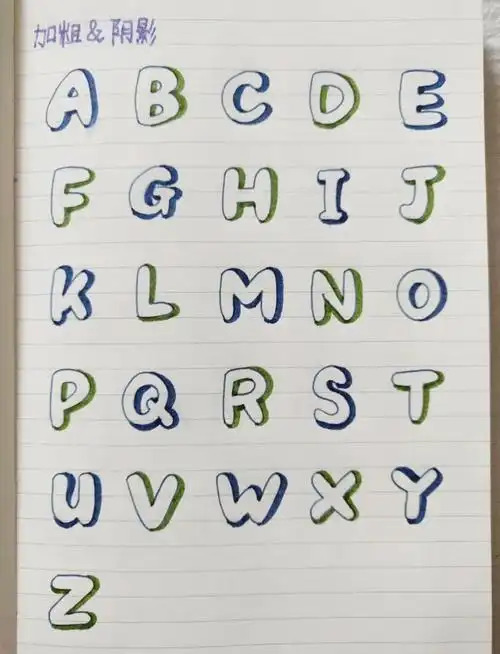 加粗 & 阴影
A B C D E
F G H I J
K L M N O
P Q R S T
U V W X Y
Z